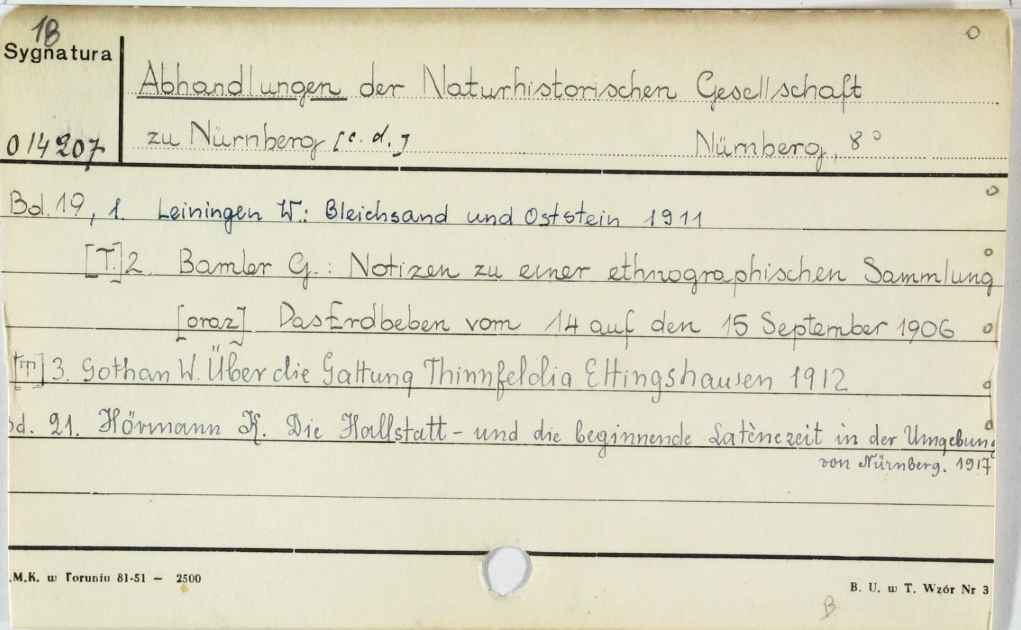 18
Sygnatura
Abhandlungen der Naturhistorischen Gesellschaft
014207
zu Nürnberg [c. d.] Nürnberg, 8°
Bd. 19, 1. Leiningen W.: Bleichsand und Oststein 1911
[T.]2. Bamler G.: Notizen zu einer ethnographischen Sammlung
[oraz] Das Erdbeben vom 14 auf den 15 September 1906
[T] 3. Gothan W. Über die Gattung Thinnfeldia Ettingshausen 1912
Bd. 21. Hörmann K. Die Hallstatt - und die beginnende Latènezeit in der Umgebung
von Nürnberg. 1917
.M.K. w Toruniu 81-51 — 2500
B. U. w T. Wzór Nr 3
B